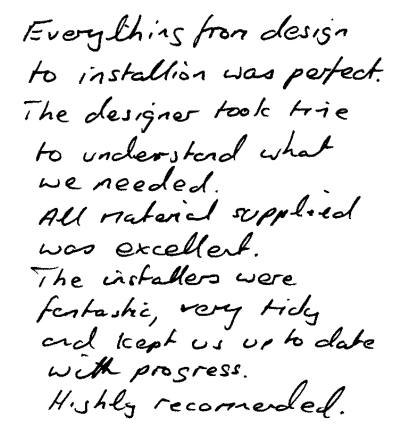 Everything from design
to installion was perfect.
The designer took time
to understand what
we needed.
All material supplied
was excellent.
The installers were
fantastic, very tidy
and kept us up to date
with progress.
Highly recommended.